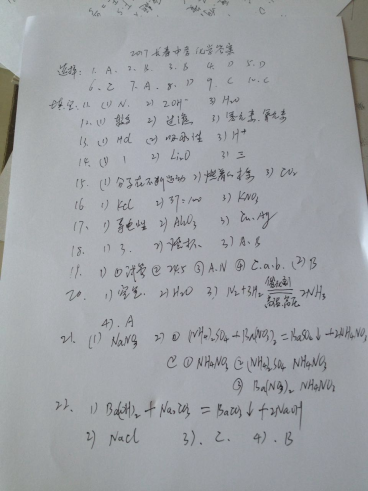 2017长春中考化学答案
选择: 1. A. 2. B. 3. B 4. D 5. D
6. C 7. A. 8. D 9. C 10. C
11. (1) N. 2) 2OH⁻ 3) H₂O
12. (1) 2) 过滤 3)
13. (1) Hcl 2) 吸水性 3) H⁺
14. (1) 1 2) Li₂O 3) 三
15. (1) 分子在不断运动 2) 3) CO₂
16. 1) Kcl 2) 37:100 3) KNO₃
17. 1) 导电性 2) Al₂O₃ 3) Cu. Ag
18. 1) 3. 2) 烧杯 3) A. B
19. 1) ① 试管 ② 245 ③ A. N ④ C. a. b. (2) B
20. 1) 2) H₂O 3) N₂+3H₂ 催化剂 高温.高压 2NH₃
4). A
21. (1) NaNO₃ 2) ① (NH₄)₂SO₄ + Ba(NO₃)₂ = BaSO₄↓ + 2NH₄NO₃
① NH₄NO₃ ② (NH₄)₂SO₄ NH₄NO₃
③ Ba(NO₃)₂ NH₄NO₃
22. 1) Ba(OH)₂ + Na₂CO₃ = BaCO₃↓ + 2NaOH
2) NaCl 3). C. 4). B